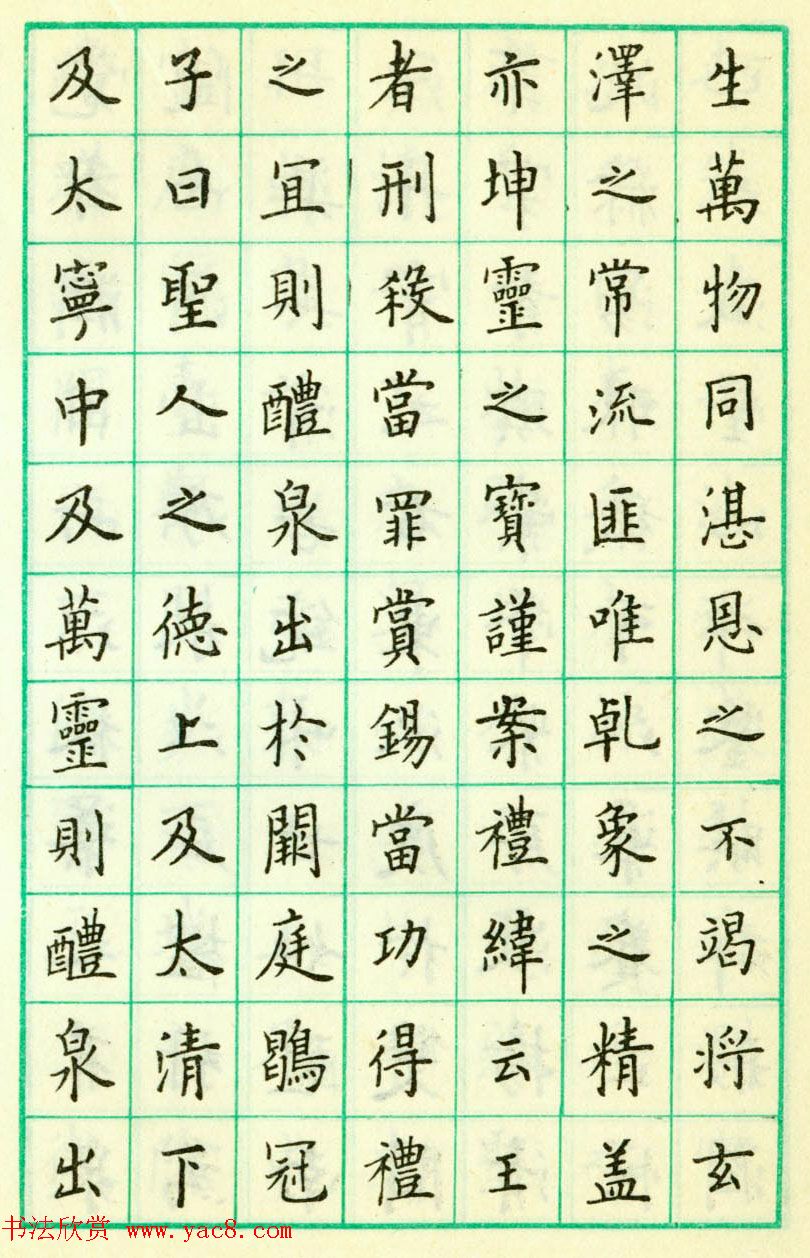 生萬物同湛恩之不竭将玄
澤之常流匪唯乹象之精盖
亦坤靈之寶謹案禮緯云王
者刑殺當罪賞錫當功得禮
之冝則醴泉出於闕庭鶡冠
子曰聖人之德上及太清下
及太寧中及萬靈則醴泉出
书法欣赏 www.yac8.com